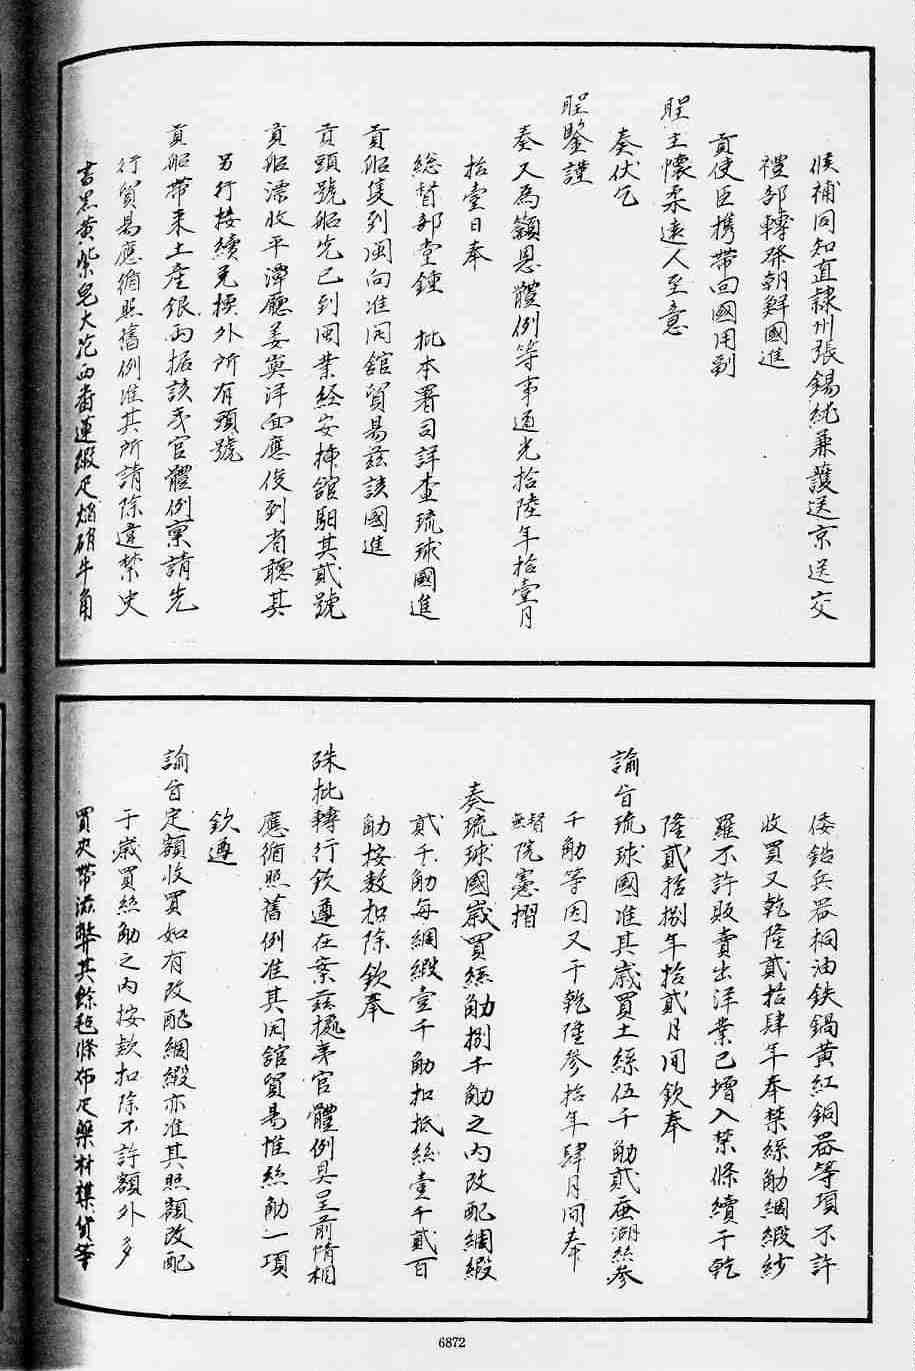 候補同知直隷州張錫純兼護送京送交
禮部轉發朝鮮國進
貢使臣携帶回國用副
聖主懷柔遠人至意
奏伏乞
聖鑒謹
奏又為籲恩體例等事道光拾陸年拾壹月
拾壹日奉
総督部堂鍾　批本署司詳查琉球國進
貢船隻到闽向准闭舘貿易兹該國進
貢頭號船先已到闽業经安揷舘驲其貳號
貢船漂收平潭廳姜寞洋面應俟到省聽其
另行接續兑換外所有頭號
貢船带来土産银两据該夷官體例禀請先
行貿易應循照舊例准其所請除違禁史
書黑黄紫皂大花西番蓮緞疋焰硝牛角
倭鉛兵器桐油鉄鍋黄紅銅器等項不許
收買又乾隆貳拾肆年奉禁絲觔綢緞紗
羅不許販賣出洋業已增入禁條續于乾
隆貳拾捌年拾貳月间欽奉
諭旨琉球國准其歲買土絲伍千觔貳蚕湖絲参
千觔等因又于乾隆参拾年肆月间奉
督撫院憲摺
奏琉球國歲買絲觔捌千觔之内改配綢緞
貳千觔每綢緞壹千觔扣抵絲壹千貳百
觔按数扣除欽奉
硃批轉行欽遵在案兹據夷官體例具呈前情相
應循照舊例准其闭舘貿易惟絲觔一項
欽遵
諭旨定額收買如有改配綢緞亦准其照額改配
于歲買絲觔之内按款扣除不許額外多
買夾带滋弊其餘毡條布疋藥材糕貨等
6872